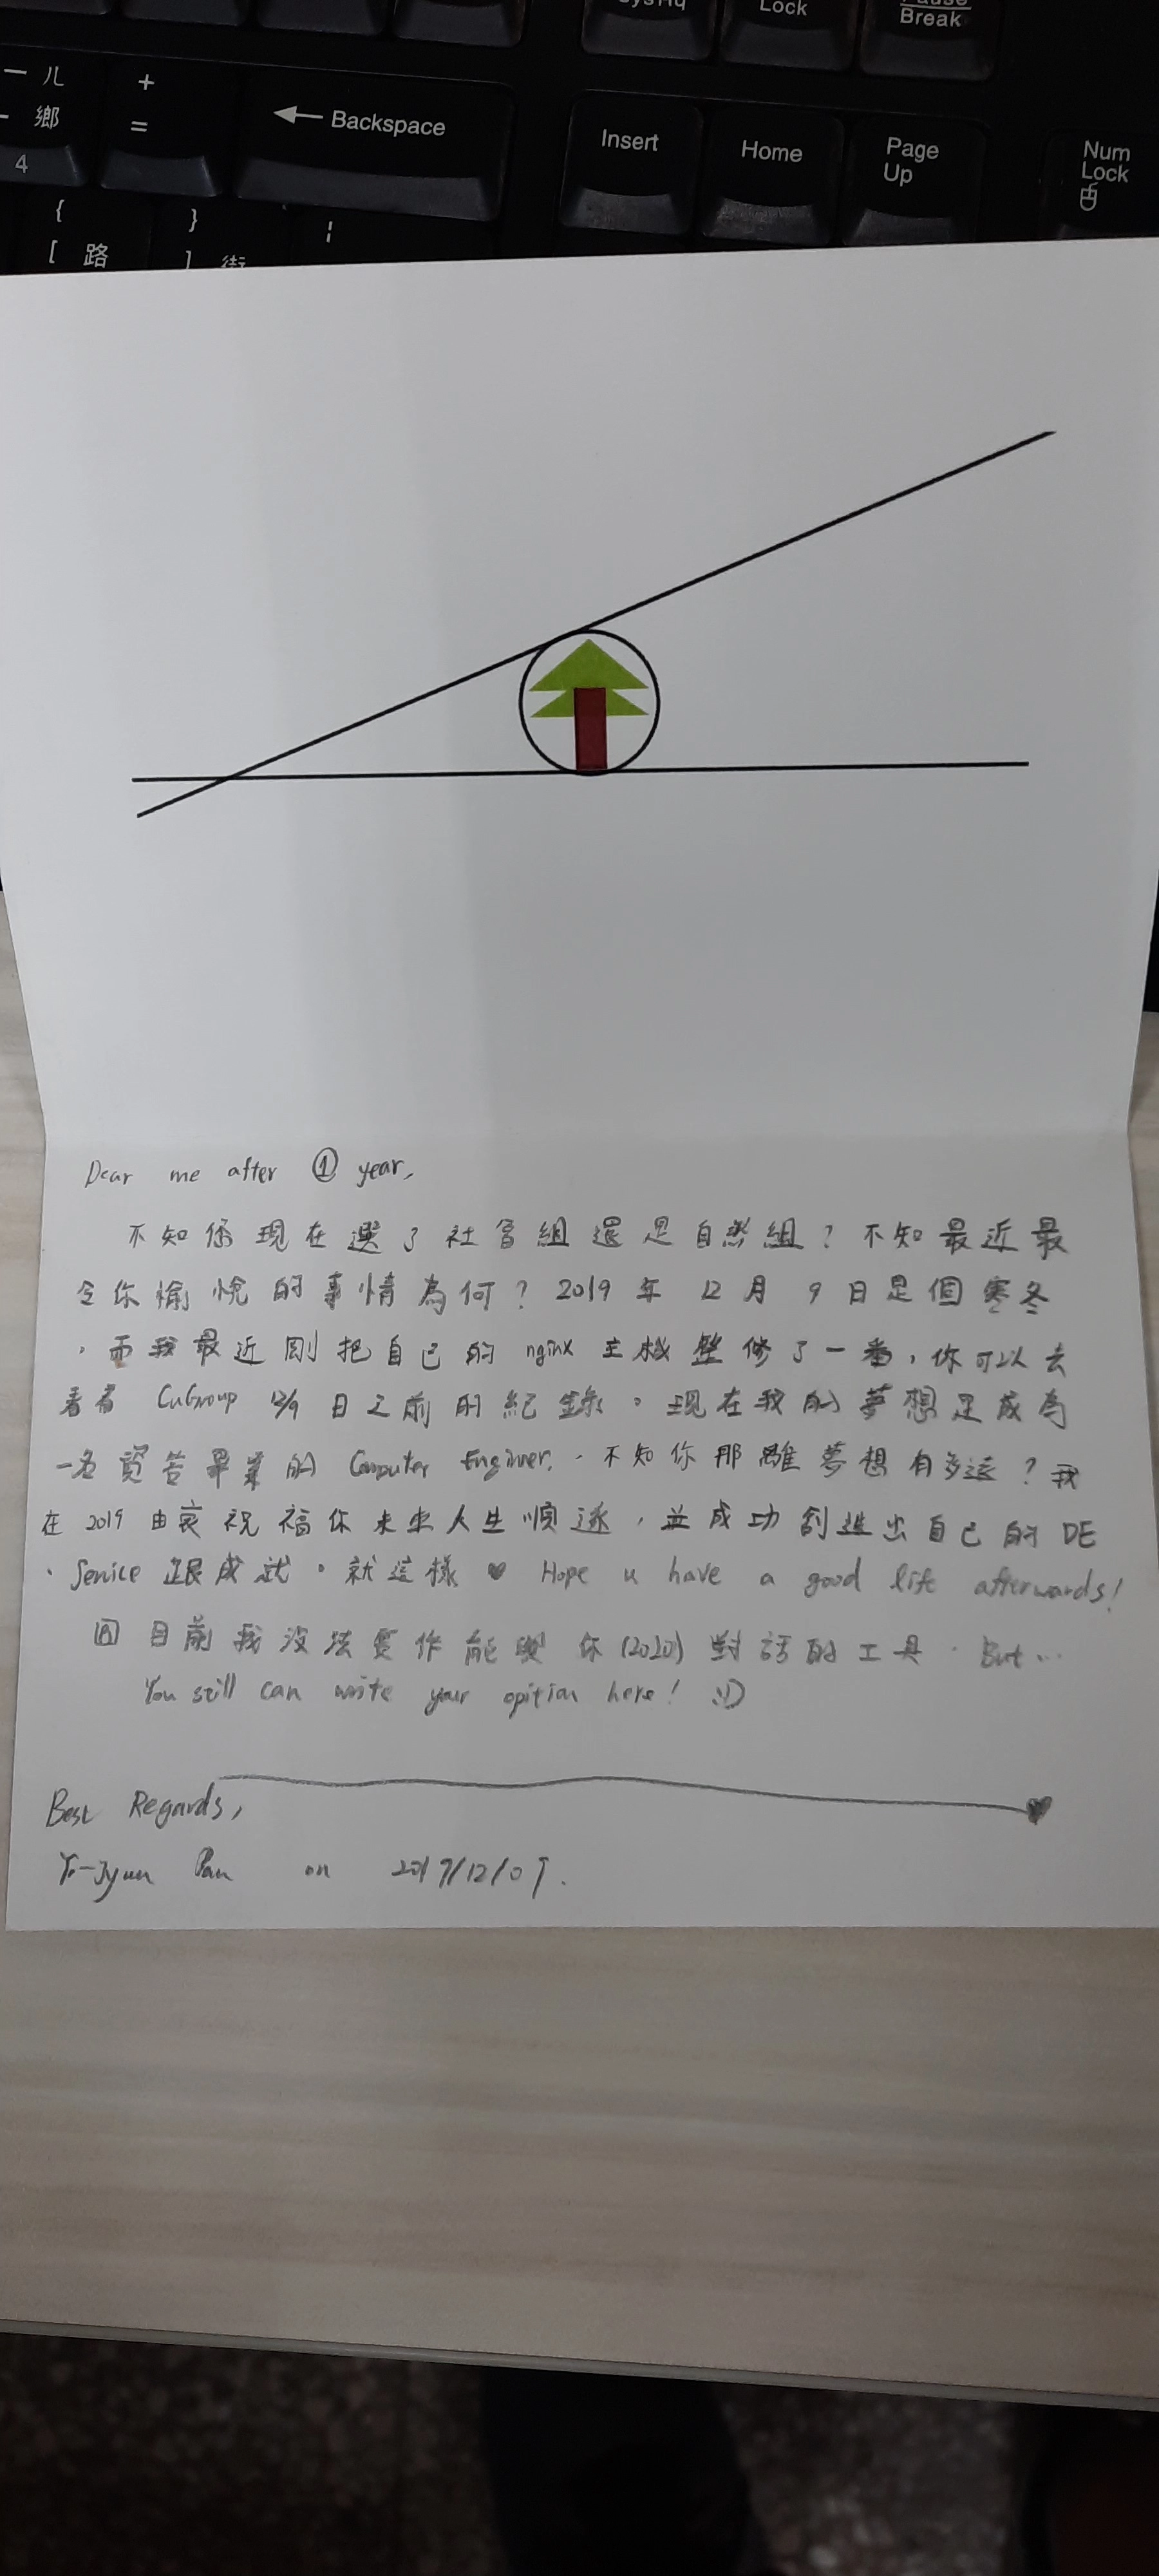 SysRq
Lock
Pause
Break
一 ㄦ
- 鄉
4
+
=
← Backspace
Insert
Home
Page
Up
Num
Lock
{
[ 路
}
] 街
¦
Dear me after ① year,
不知你現在選了社會組還是自然組？不知最近最
令你愉悅的事情為何？2019 年 12 月 9 日是個寒冬
，而我最近剛把自己的 nginx 主機整修了一番，你可以去
看看 CuGroup 12/9 日之前的紀錄。現在我的夢想是成為
一名資管畢業的 Computer Enginer，不知你那離夢想有多遠？我
在 2019 由衷祝福你未來人生順遂，並成功創造出自己的 DE
、Service 跟成就。就這樣 ♥ Hope u have a good life afterwards!
目前我沒法實作能與你(2020)對話的工具，But...
You still can write your opition here! :D
Best Regards,
Yi-Jyun Pan on 2019/12/09.